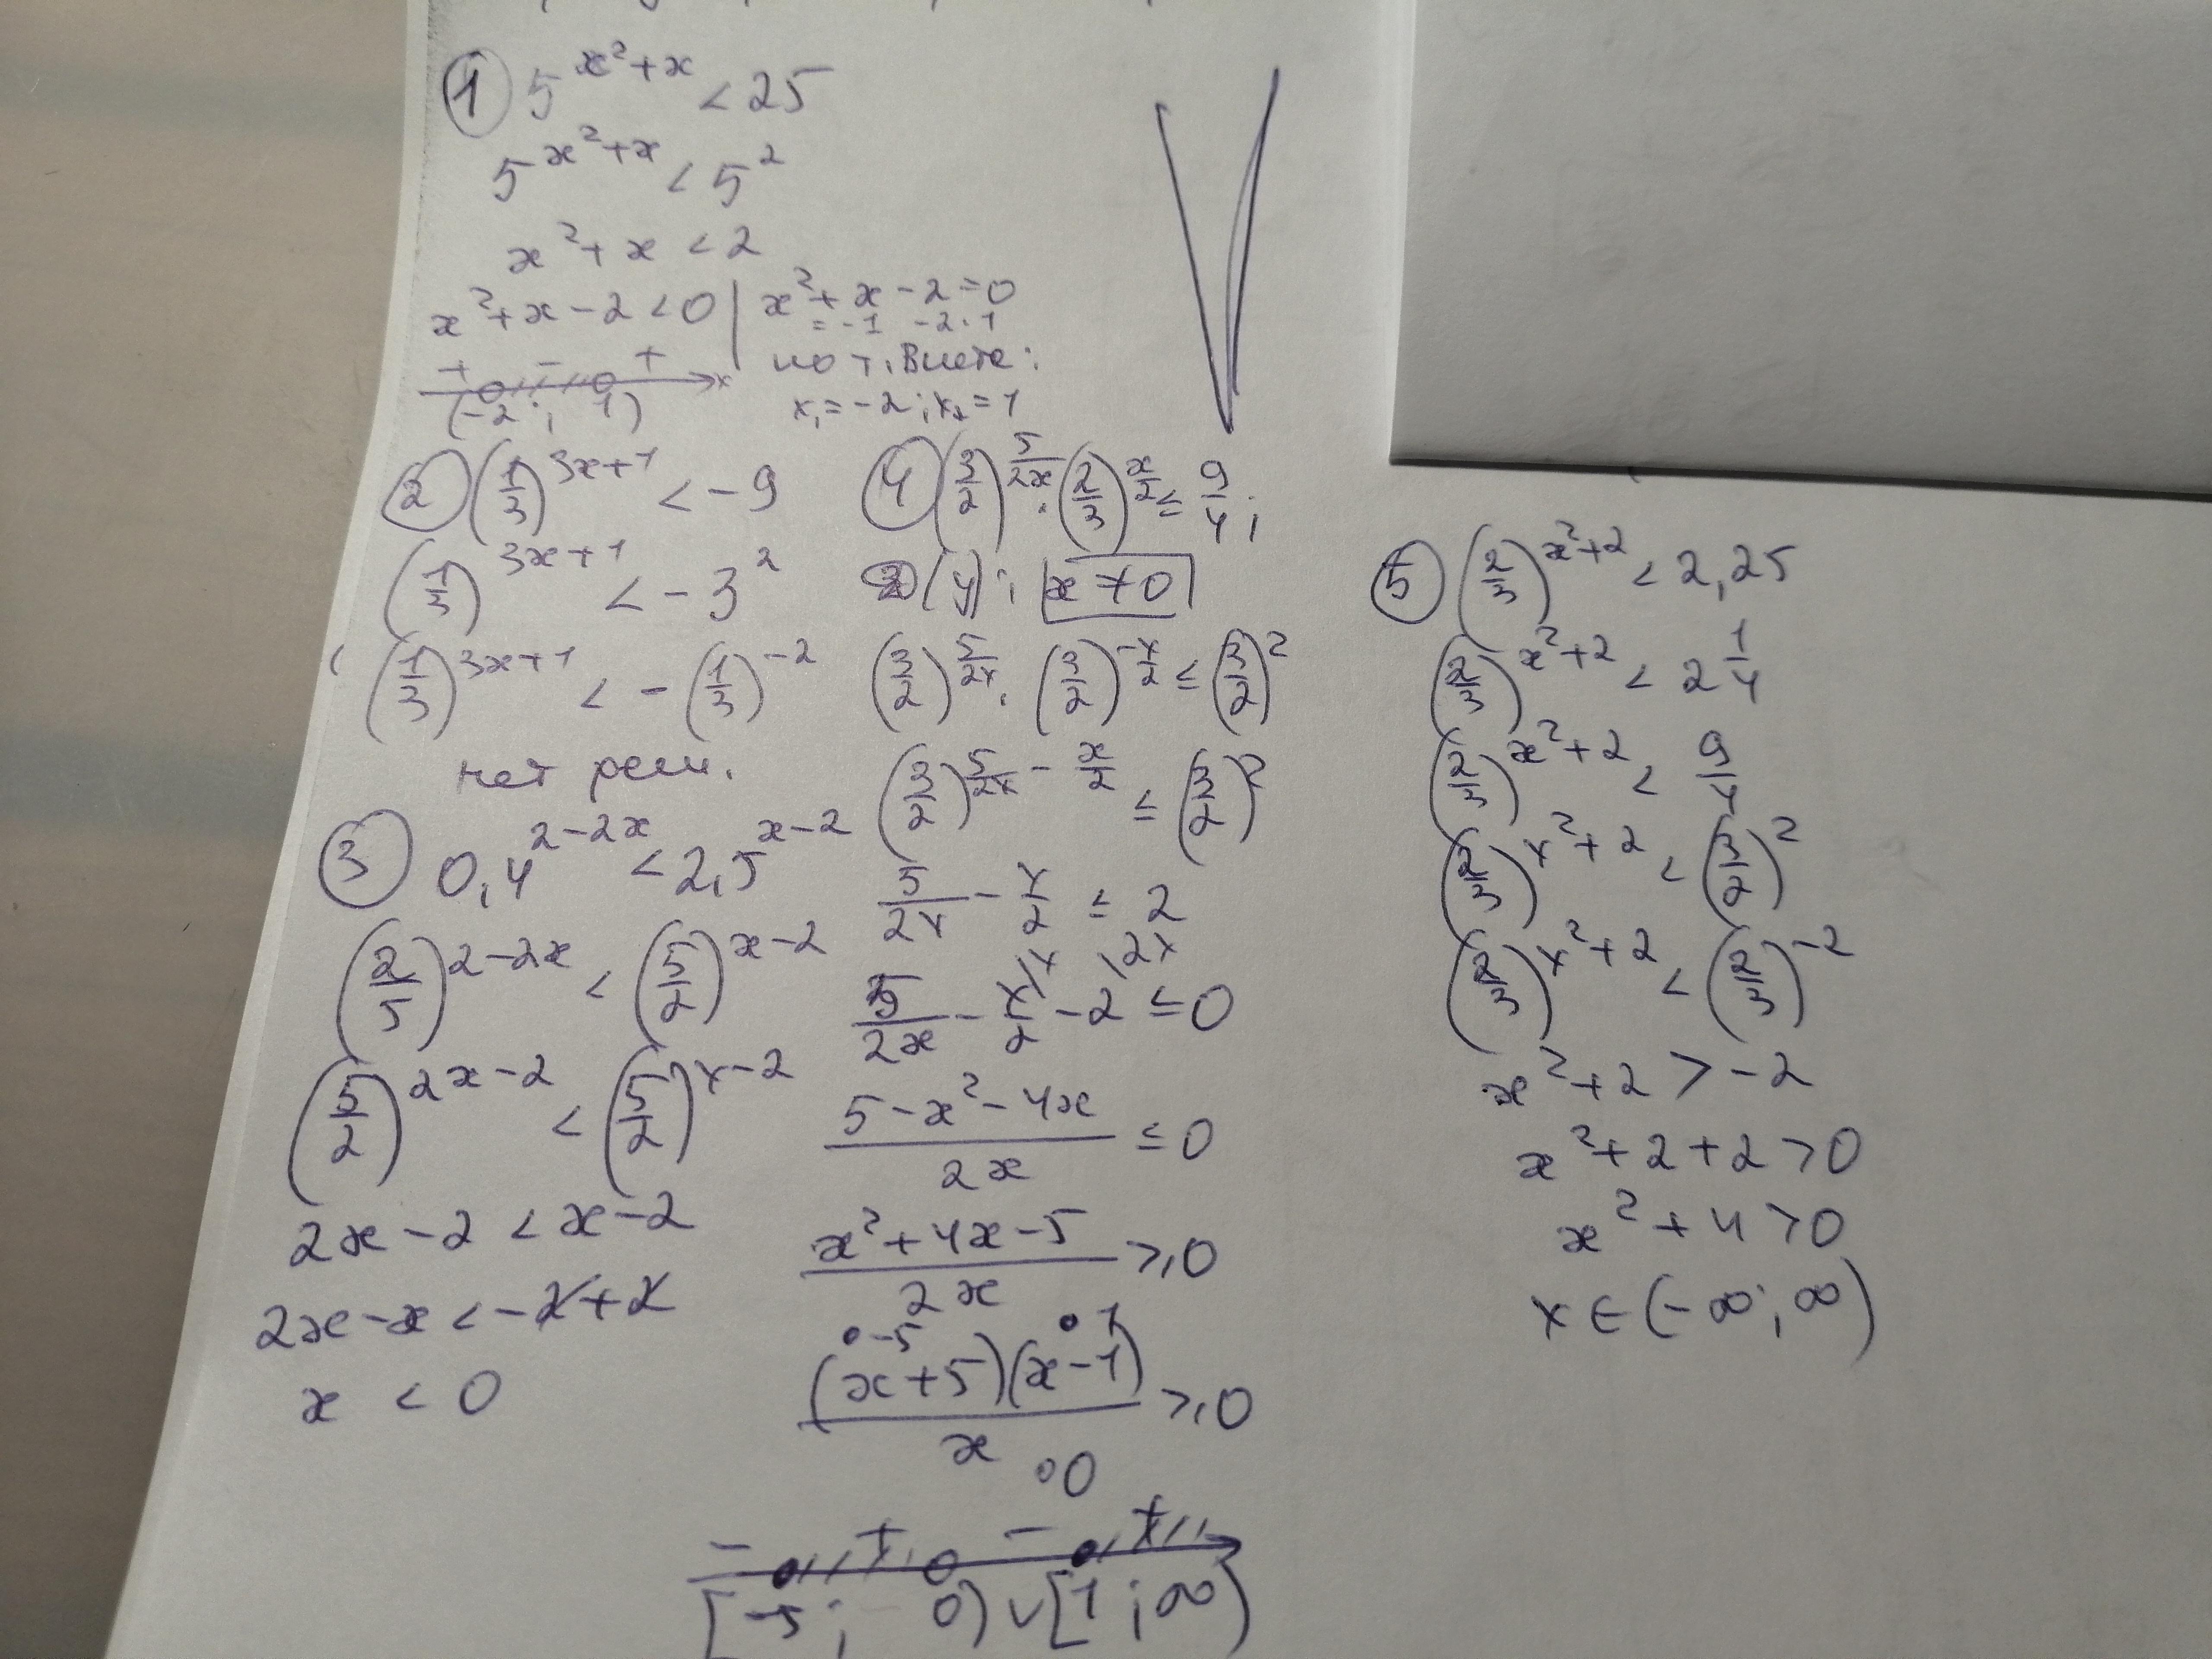 ① 5^(x²+x) < 25
5^(x²+x) < 5²
x² + x < 2
x² + x - 2 < 0 | x² + x - 2 = 0
= -1 -2·1
по т. Виета:
x₁ = -2; x₂ = 1
+ - + x
(-2; 1)
② (1/3)^(3x+1) < -9
(1/3)^(3x+1) < -3²
(1/3)^(3x+1) < -(1/3)^(-2)
нет реш.
③ 0,4^(2-2x) < 2,5^(x-2)
(2/5)^(2-2x) < (5/2)^(x-2)
(5/2)^(2x-2) < (5/2)^(x-2)
2x - 2 < x - 2
2x - x < -2 + 2
x < 0
④ (3/2)^(5/2x) · (2/3)^(x/2) ≤ 9/4;
(у): x ≠ 0
(3/2)^(5/2x) · (3/2)^(-x/2) ≤ (3/2)²
(3/2)^(5/2x - x/2) ≤ (3/2)²
5/2x - x/2 ≤ 2
5/2x - x/2 \x - 2 \2x ≤ 0
(5 - x² - 4x)/2x ≤ 0
(x² + 4x - 5)/2x ≥ 0
• -5 • 1
(x+5)(x-1)/x ≥ 0
∘0
- + - +
[-5; 0) ∪ [1; ∞)
⑤ (2/3)^(x²+2) < 2,25
(2/3)^(x²+2) < 2 1/4
(2/3)^(x²+2) < 9/4
(2/3)^(x²+2) < (3/2)²
(2/3)^(x²+2) < (2/3)^(-2)
x² + 2 > -2
x² + 2 + 2 > 0
x² + 4 > 0
x ∈ (-∞; ∞)